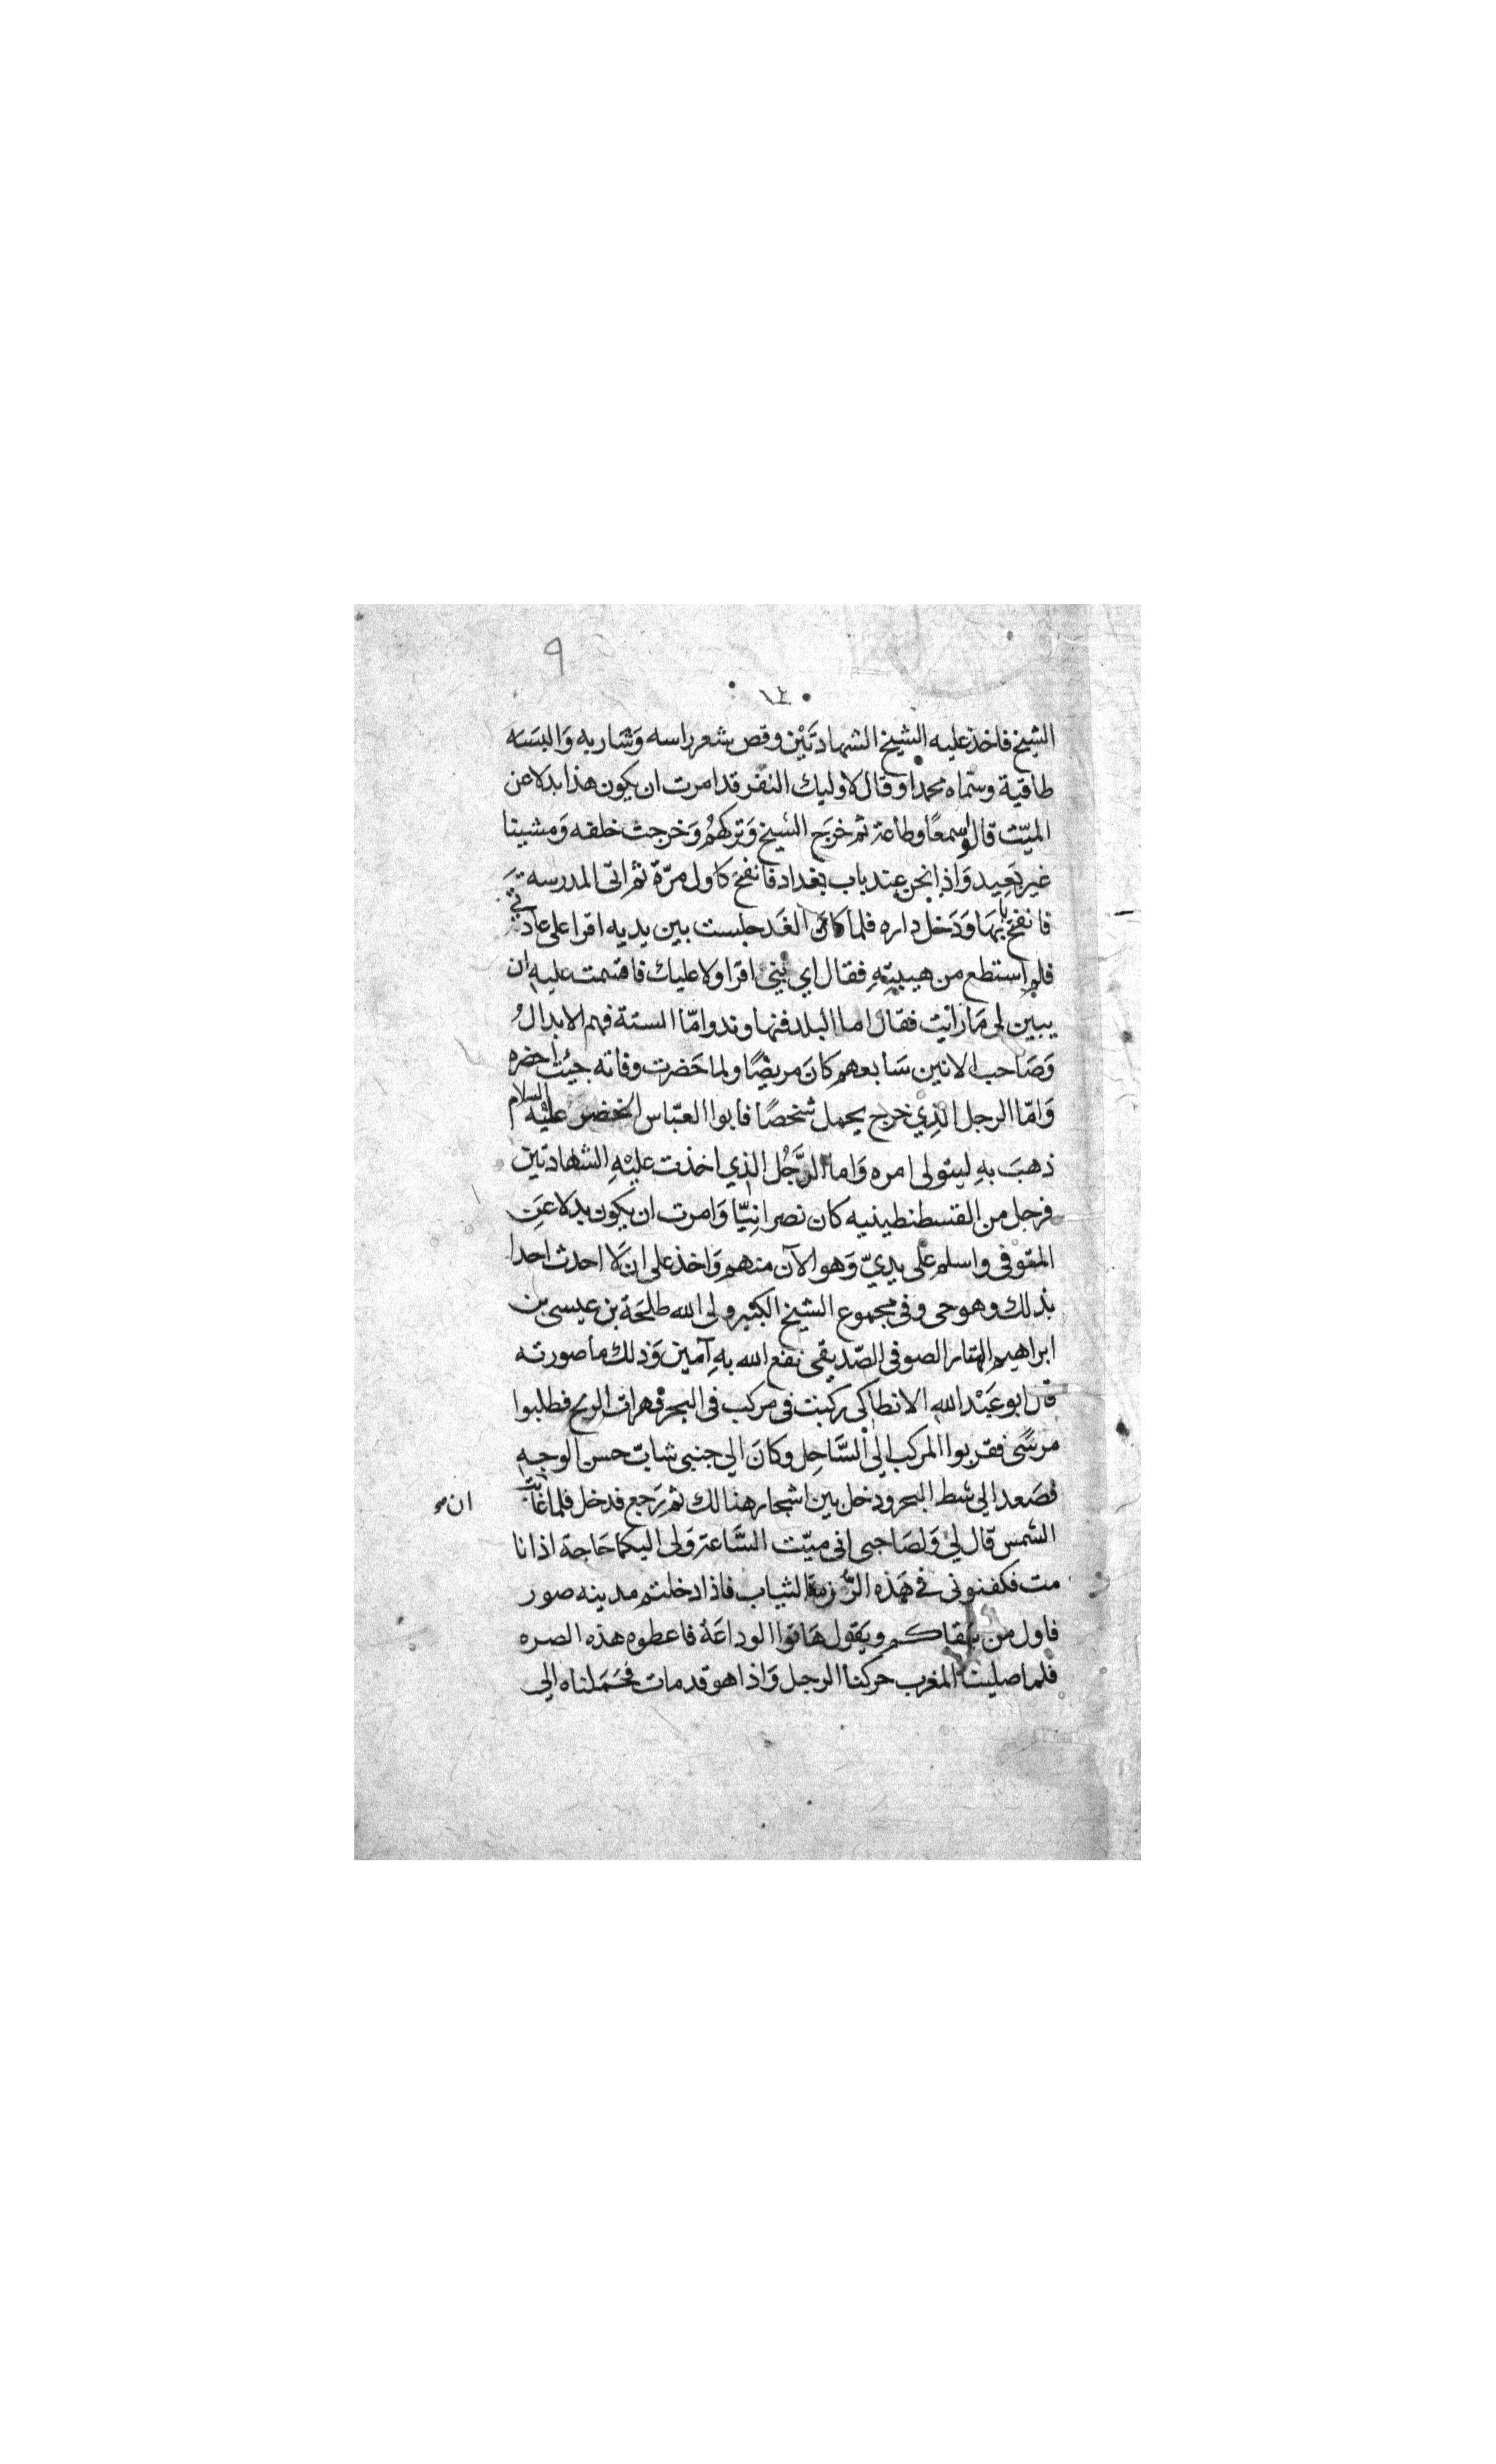 ٩
١٤
الشيخ فاخذ عليه الشيخ الشهادتَيْن وقص شعر راسه وَشَاربه وَالبسَه
طاقية وسَمّاه محمدا وقال لاوليك النفر قد امرت ان يكون هذا بدلا عن
الميّت قالوا سمعًا وطاعة ثم خرَج الشيخ وَتركهُم وَخرجت خلفه وَمشينا
غير بَعِيد وَاذا نحن عند باب بغداد فانفتح كاول مرّة ثم اتى المدرسه
فانفتحَ بابهَا وَدَخل داره فلما كان الغَد جلست بين يديه اقرا على عادتي
فلم استطع من هيبتِهِ فقال اي بني اقرا ولا عليك فاقسمت عليه ان
يبين لي مَا رَايت فقال اما البلد فنهاوند وامّا الستة فهم الابدالُ
وَصَاحب الانين سَابعهم كانَ مريضًا ولما حَضرت وفاته جيئت احضره
وَامّا الرجل الذِي خرج يحمل شخصًا فابوا العبّاس الخضر عليْه السلام
ذهبَ بهِ ليتولى امره وَاما الرَّجُل الذي اخذت عليْهِ الشهادتين
فرجل من القسطنطينيه كان نصرانِيًّا وَامرت ان يكون بدلا عَن
المتوفى واسلم على يديّ وَهو الآن منهم وَاخذ على ان لَا احدث احدا
بذلك وهو حي وفى مجموع الشيخ الكبير ولى الله طلحَة بن عيسى بن
ابراهيم الهتار الصوفى الصّديقى نفع الله بهِ آمين وَذلك ما صورته
قال ابو عَبْد الله الانطاكى ركبت فى مركب فى البحر فهرات الريح فطلبوا
مرسًى فقربوا المركب الىْ السَّاحِل وكانَ الي جنبى شابّ حسن الوجه
فصَعد الي شط البحر ودخل بين اشجار هنالك ثم رَجع فدخل فلما غابت
ان
الشمس قال لي وَلصَاحبى انى ميّت السَّاعة وَلى اليكما حَاجة اذا انا
مت فكفنونى في هَذه الرّزمة الثياب فاذا دخلتم مدينه صور
فاول من يلقاكم ويَقول هَاتوا الوداعَة فاعطوه هذه الصره
فلما صلينا المغرب حركنا الرجل وَاذا هو قد مات فحَمَلناه الي